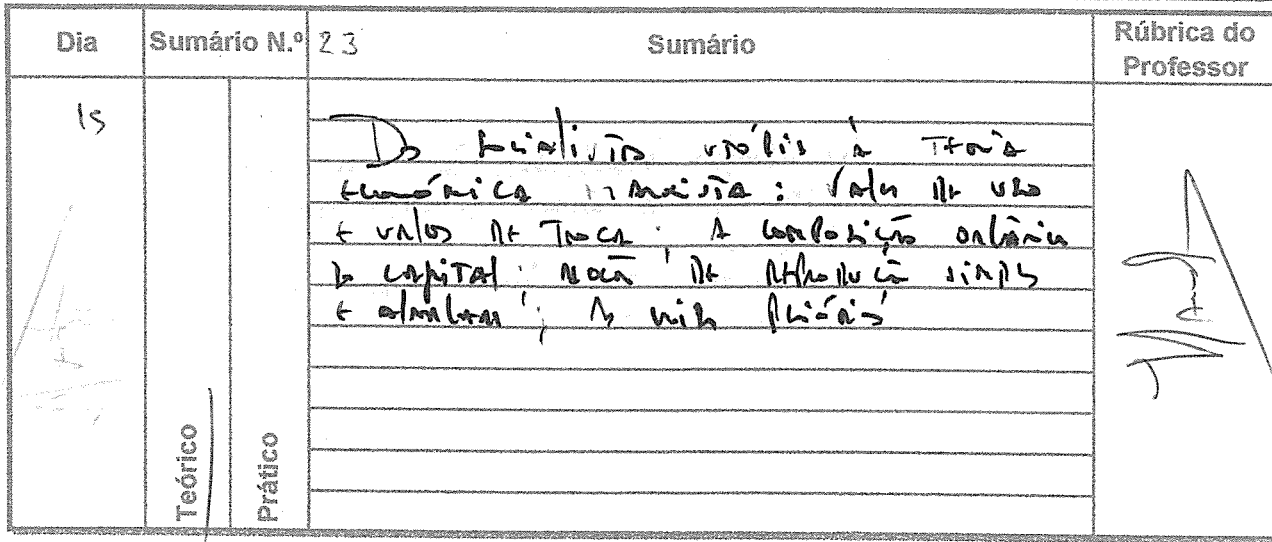 Dia Sumário N.º 23 Sumário Rúbrica do Professor
15
Do socialismo utópico à Teoria
económica marxista: Valor de uso
e valor de Troca; A composição orgânica
do capital; noção de reprodução simples
e alargada; As crises periódicas
Teórico
Prático